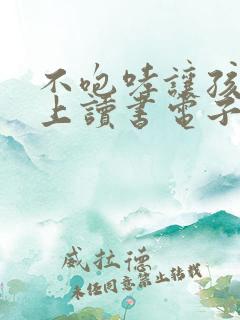 不咆哮讓孩
上讀書電子
威拉德
未經同意禁止轉載